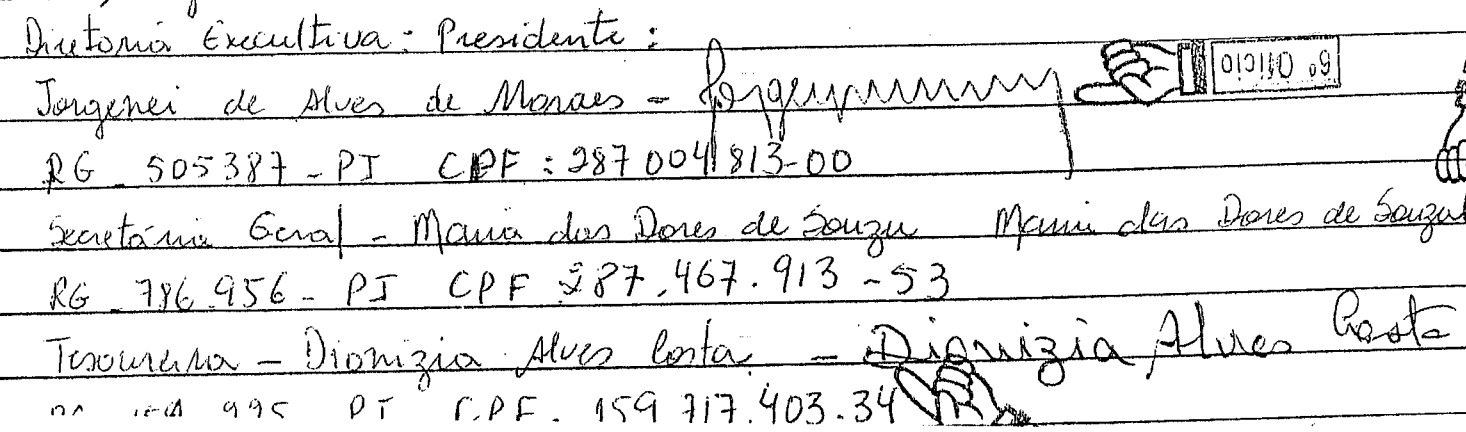 Diretoria Execultiva: Presidente:
Jorgenei de Alves de Moraes -
6º Ofício
RG 505387 - PI CPF: 287 004 813-00
Secretária Geral - Maria das Dores de Souza Maria das Dores de Souza
RG 786.956 - PI CPF 287.467.913-53
Tesoureira - Dionizia Alves Costa - Dionizia Alves Costa
995 PI CPF. 159 717.403.34